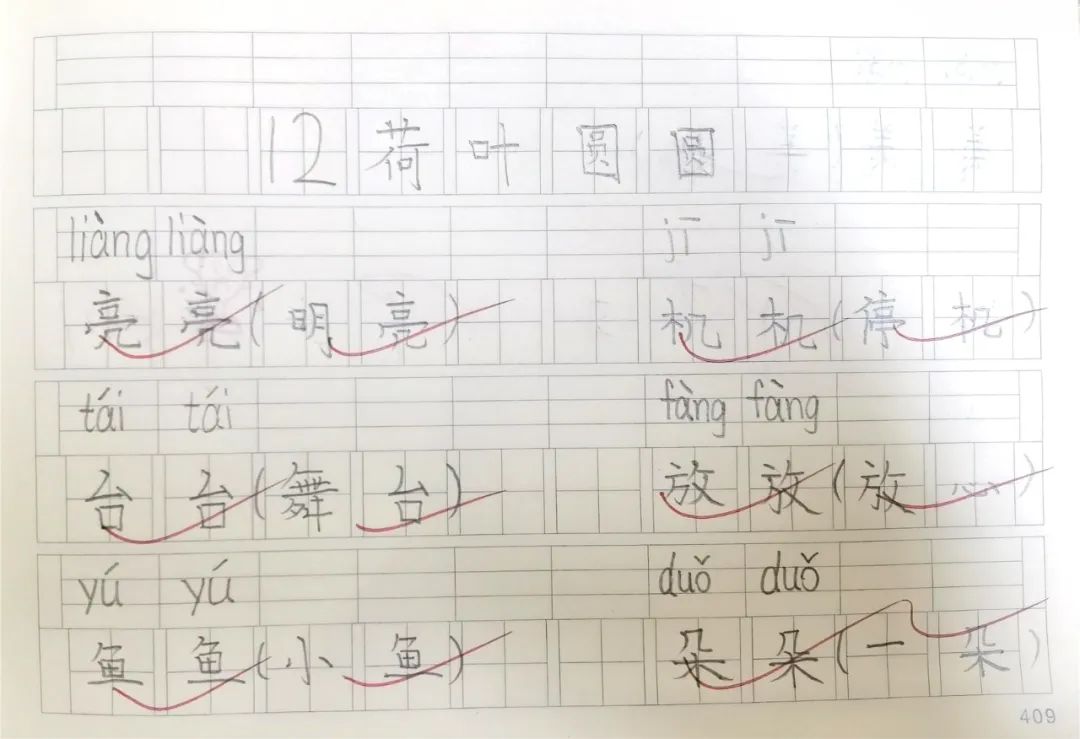 12荷叶圆圆
liàng liàng jī jī
亮亮(明亮) 机机(停机)
tái tái fàng fàng
台台(舞台) 放放(放心)
yú yú duǒ duǒ
鱼鱼(小鱼) 朵朵(一朵)
409